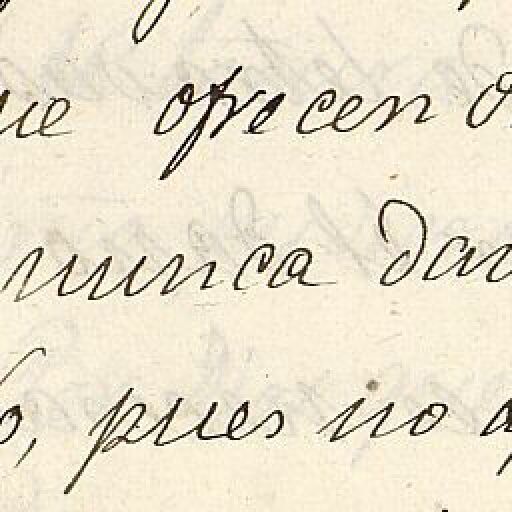 ue ofrecen
nunca dan
o, pues no